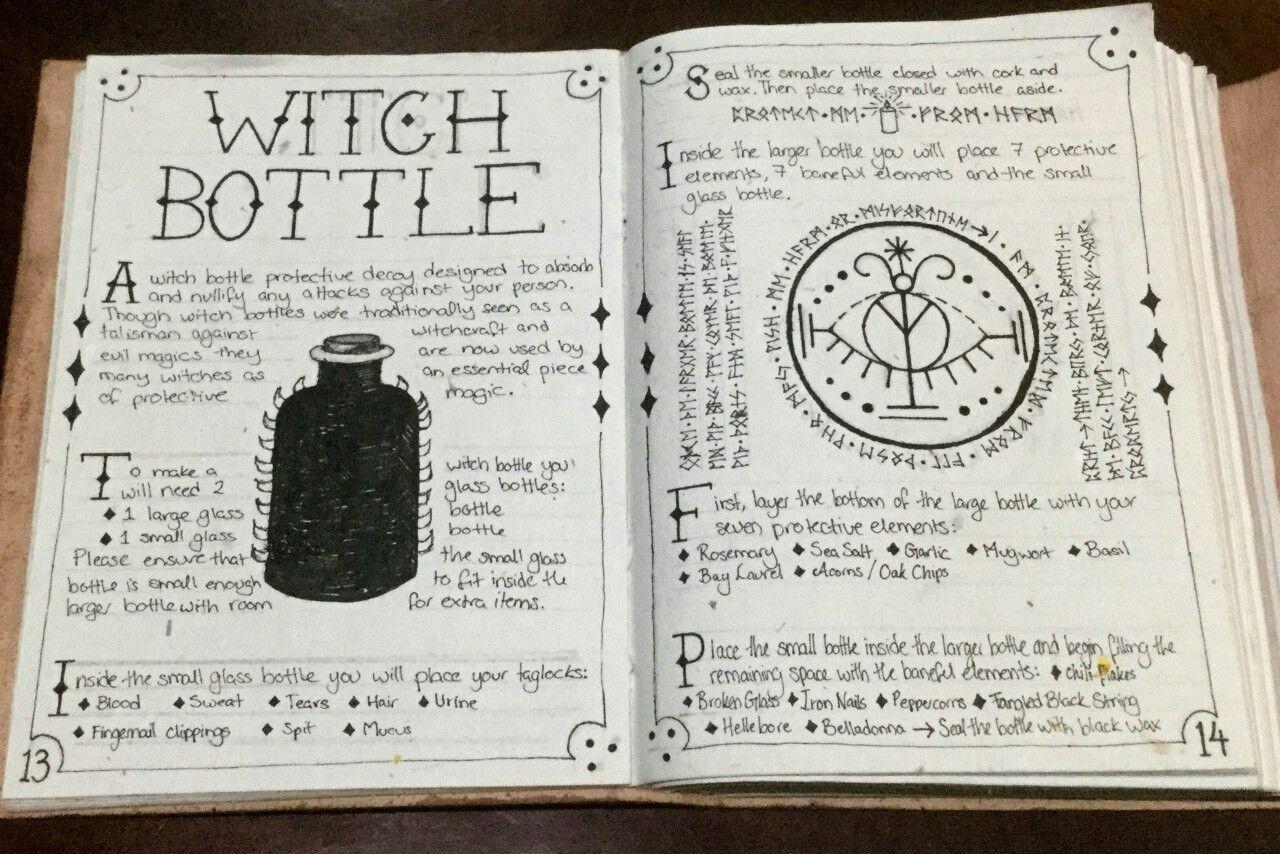 WITCH
BOTTLE
A witch bottle protective decoy designed to absorb
and nullify any attacks against your person.
Though witch bottles were traditionally seen as a
talisman against witchcraft and
evil magics they are now used by
many witches as an essential piece
of protective magic.
To make a witch bottle you
will need 2 glass bottles:
♦ 1 large glass bottle
♦ 1 small glass bottle
Please ensure that the small glass
bottle is small enough to fit inside the
larger bottle with room for extra items.
Inside the small glass bottle you will place your taglocks:
♦ Blood ♦ Sweat ♦ Tears ♦ Hair ♦ Urine
♦ Fingernail clippings ♦ Spit ♦ Mucus
13
Seal the smaller bottle closed with cork and
wax. Then place the smaller bottle aside.
ᛈᚱᛟᛏᛖᚲᛏ·ᛗᛖ· ·ᚠᚱᛟᛗ·ᚺᚨᚱᛗ
Inside the larger bottle you will place 7 protective
elements, 7 baneful elements and the small
glass bottle.
ᛁ·ᚨᛗ·ᛈᚱᛟᛏᛖᚲᛏᛖᛞ·ᚠᚱᛟᛗ·ᚨᛚᛚ·ᚦᛟᛋᛖ·ᚹᚺᛟ·ᛗᚨᛃ·ᚹᛁᛋᚺ·ᛗᛖ·ᚺᚨᚱᛗ·ᛟᚱ·ᛗᛁᛋᚠᛟᚱᛏᚢᚾᛖ→
First, layer the bottom of the large bottle with your
seven protective elements:
♦ Rosemary ♦ Sea Salt ♦ Garlic ♦ Mugwort ♦ Basil
♦ Bay Laurel ♦ Acorns / Oak Chips
Place the small bottle inside the larger bottle and begin filling the
remaining space with the baneful elements: ♦ Chili Flakes
♦ Broken Glass ♦ Iron Nails ♦ Peppercorns ♦ Tangled Black String
♦ Hellebore ♦ Belladonna → Seal the bottle with black wax
14